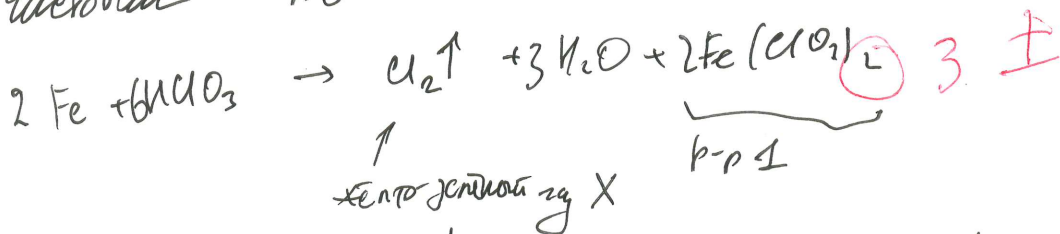 2 Fe + 6HClO₃ → Cl₂↑ + 3H₂O + 2Fe(ClO₃)₂ 3 ±
р-р 1
желто-зелёный газ X